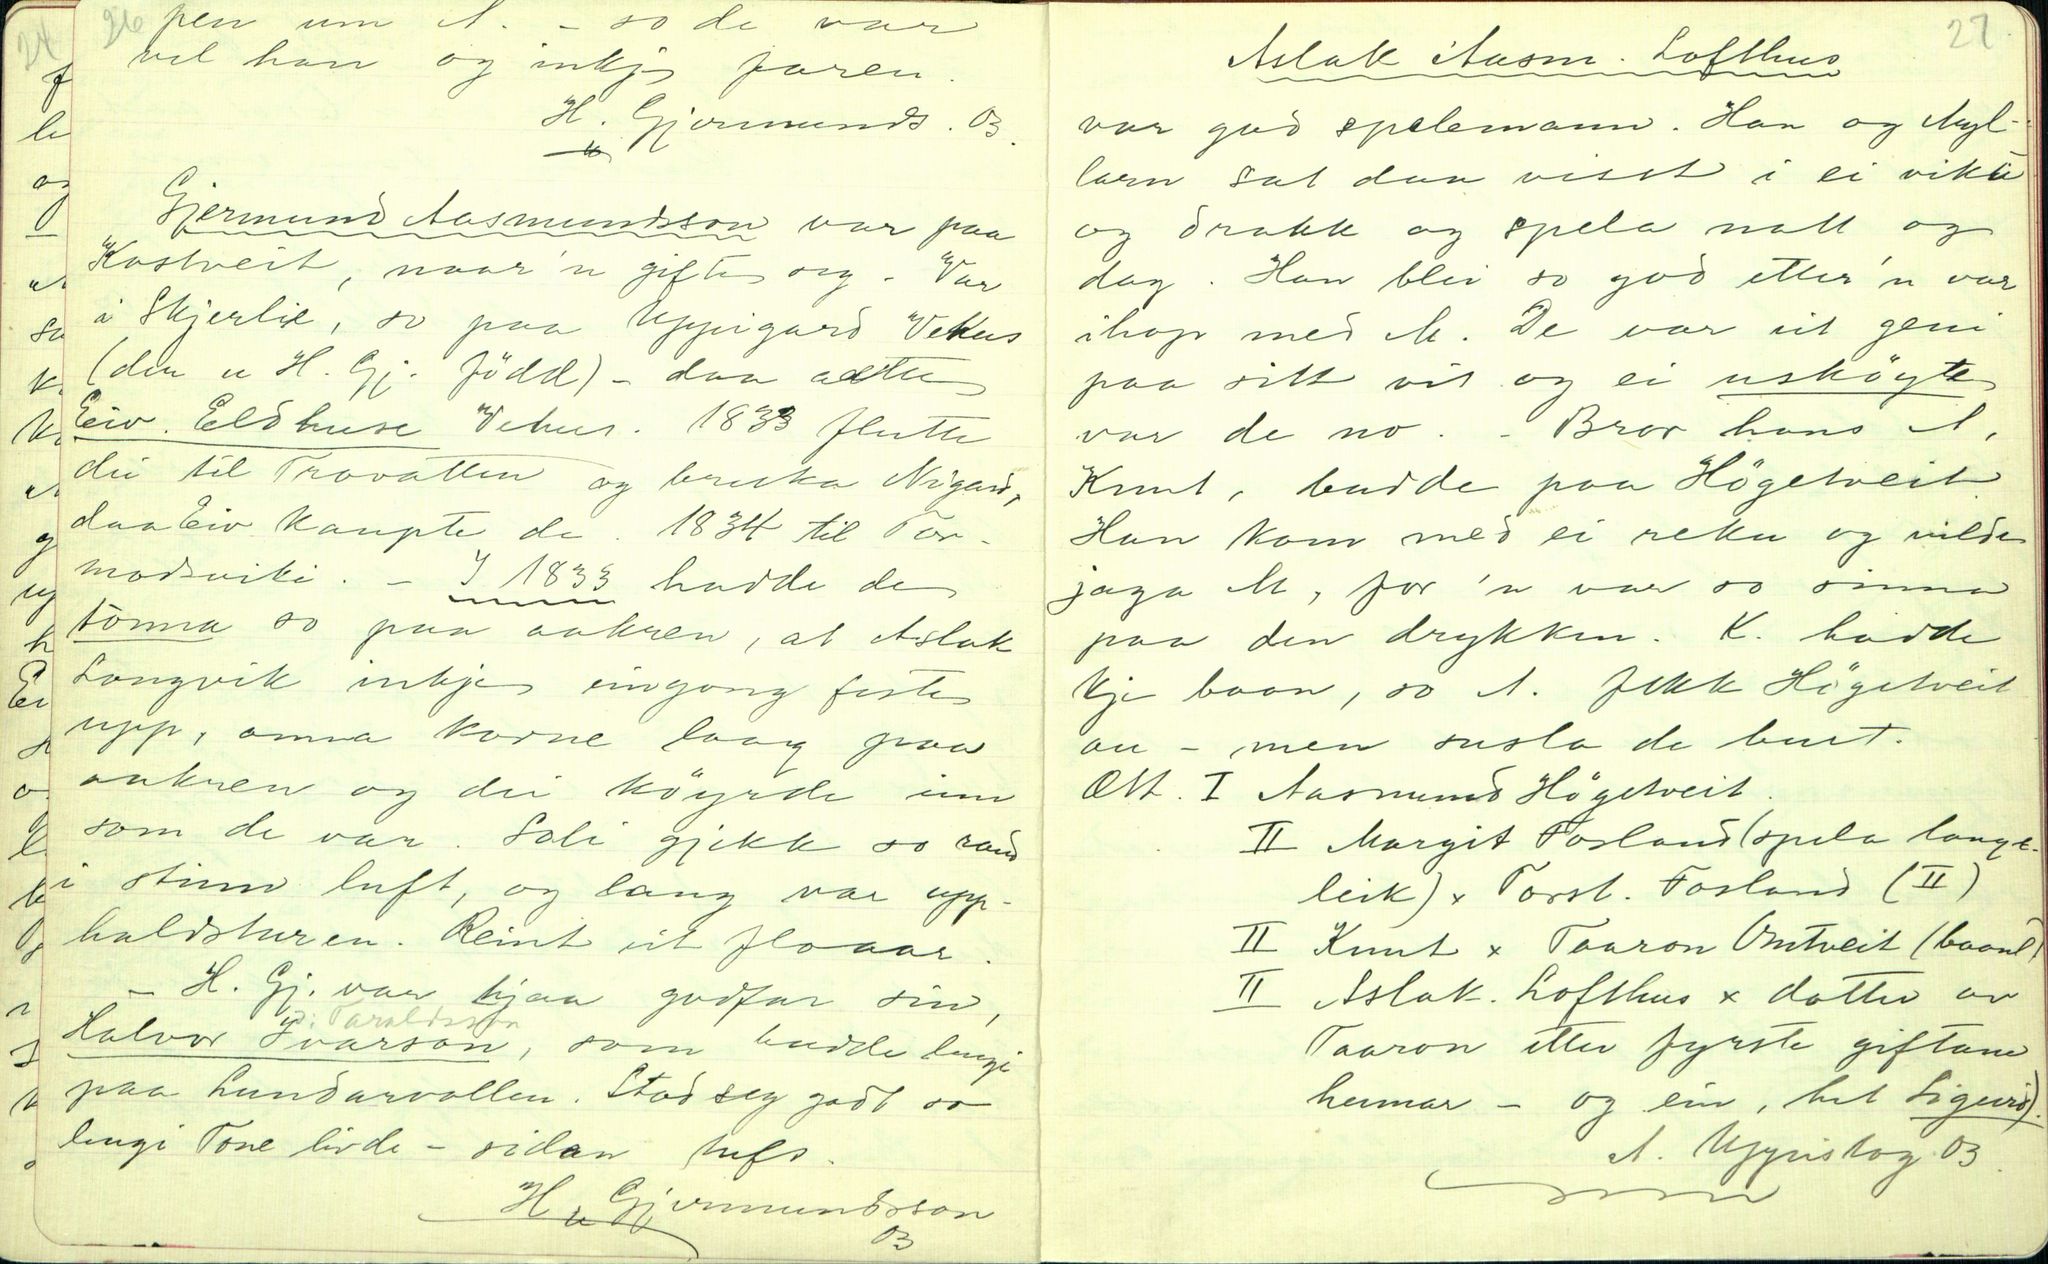 26
pen um A. - so de var
vel han og inkje faren.
H. Gjermunds. 03.
Gjermund Aasmundsson var paa
Kostveit, naar'n gifte seg. - Var
i Skjerlie, so paa Uppigard Vehus
(der u H. Gj. född) - daa aatte
Eiv. Eldhuse Vehus. 1833 flutte
dei til Trovatten og bruka Nigard,
daa Eiv kaupte de. 1834 til Tor-
modsviki. - I 1833 hadde de
tonna so paa aakren, at Aslak
Longvik inkje eingong feste
upp, onna korne laag paa
aakren og dei köyrde inn
som de var. Soli gjekk so raud
i stinn luft, og lang var upp-
haldsturen. Reint eit floaar.
- H. Gj. var hjaa godfar sin,
Taraldsson
Halvor Ivarson, som budde lengi
paa Lundarvollen. Stod seg godt so
lengi Tone livde - sidan tufs.
H. Gjermundsson
03
27.
Aslak Aasm. Lofthus
var god spelemann. Han og Myl-
larn sat daa visst i ei viku
og drakk og spela natt og
dag. Han blei so god etter'n var
ihop med M. De var eit geni
paa sitt vis og ei usköyte
var de no. - Bror hans A,
Knut, budde paa Högetveit.
Han kom med ei reku og vilde
jaga M, for 'n var so sinna
paa den drykken. K. hadde
kje baan, so A. fekk Högetveit
au - men susla de burt.
Ætt. I Aasmund Högetveit.
II Margit Fosland (spela lange-
leik) x Torst. Fosland (II)
II Knut x Taaron Omtveit (baanl)
II Aslak Lofthus x dotter av
Taaron etter fyrste giftame
hennar - og ein, het Sigurd).
A. Uppistog 03.